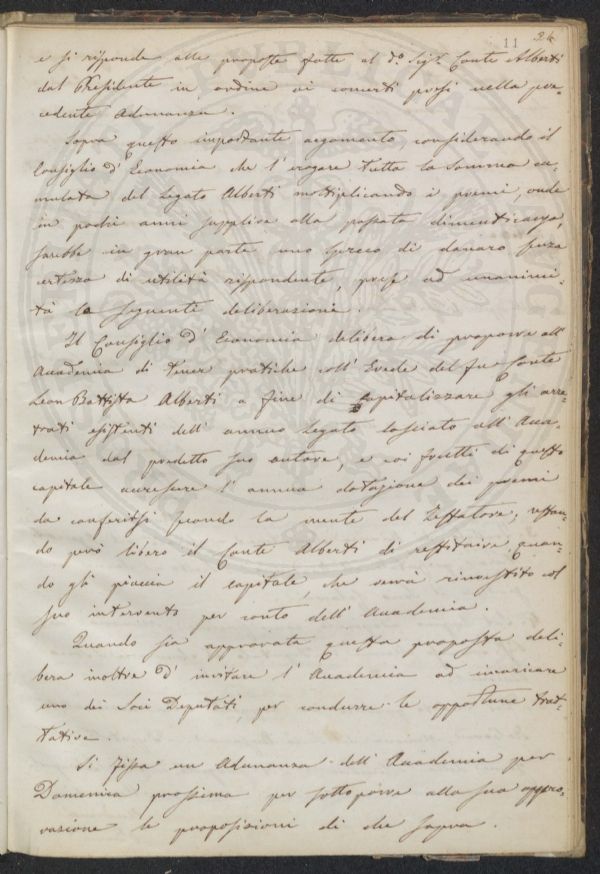 11 24
e si risponde alle proposte fatte al d.º Sig.r Conte Alberti
dal Presidente in ordine ai concerti presi nella pre-
cedente Adunanza.
Sopra questo importante argomento considerando il
Consiglio d'Economia che l'erogare tutta la somma cu-
mulata del Legato Alberti moltiplicando i premi, onde
in pochi anni supplire alla passata dimenticanza,
sarebbe in gran parte uno spreco di danaro senza
certezza di utilità rispondente, prese ad unanimi-
tà la seguente deliberazione.
Il Consiglio d'Economia delibera di proporre all'
Accademia di tener pratiche coll'Erede del fu Conte
Leon Battista Alberti a fine di capitalizzare gli arre-
trati esistenti dell'annuo Legato lasciato all'Acca-
demia dal predetto suo autore, e coi frutti di questo
capitale accrescere l'annua dotazione dei premi
da conferirsi secondo la mente del Testatore, restan-
do però libero il Conte Alberti di restituire quan-
do gli piaccia il capitale, che verrà rinvestito col
suo intervento per conto dell'Accademia.
Quando sia approvata questa proposta deli-
bera inoltre d'invitare l'Accademia ad incaricare
uno dei Soci Deputati, per condurre le opportune trat-
tative.
Si fissa un Adunanza dell'Accademia per
Domenica prossima per sottoporre alla sua appro-
vazione le proposizioni di che sopra.